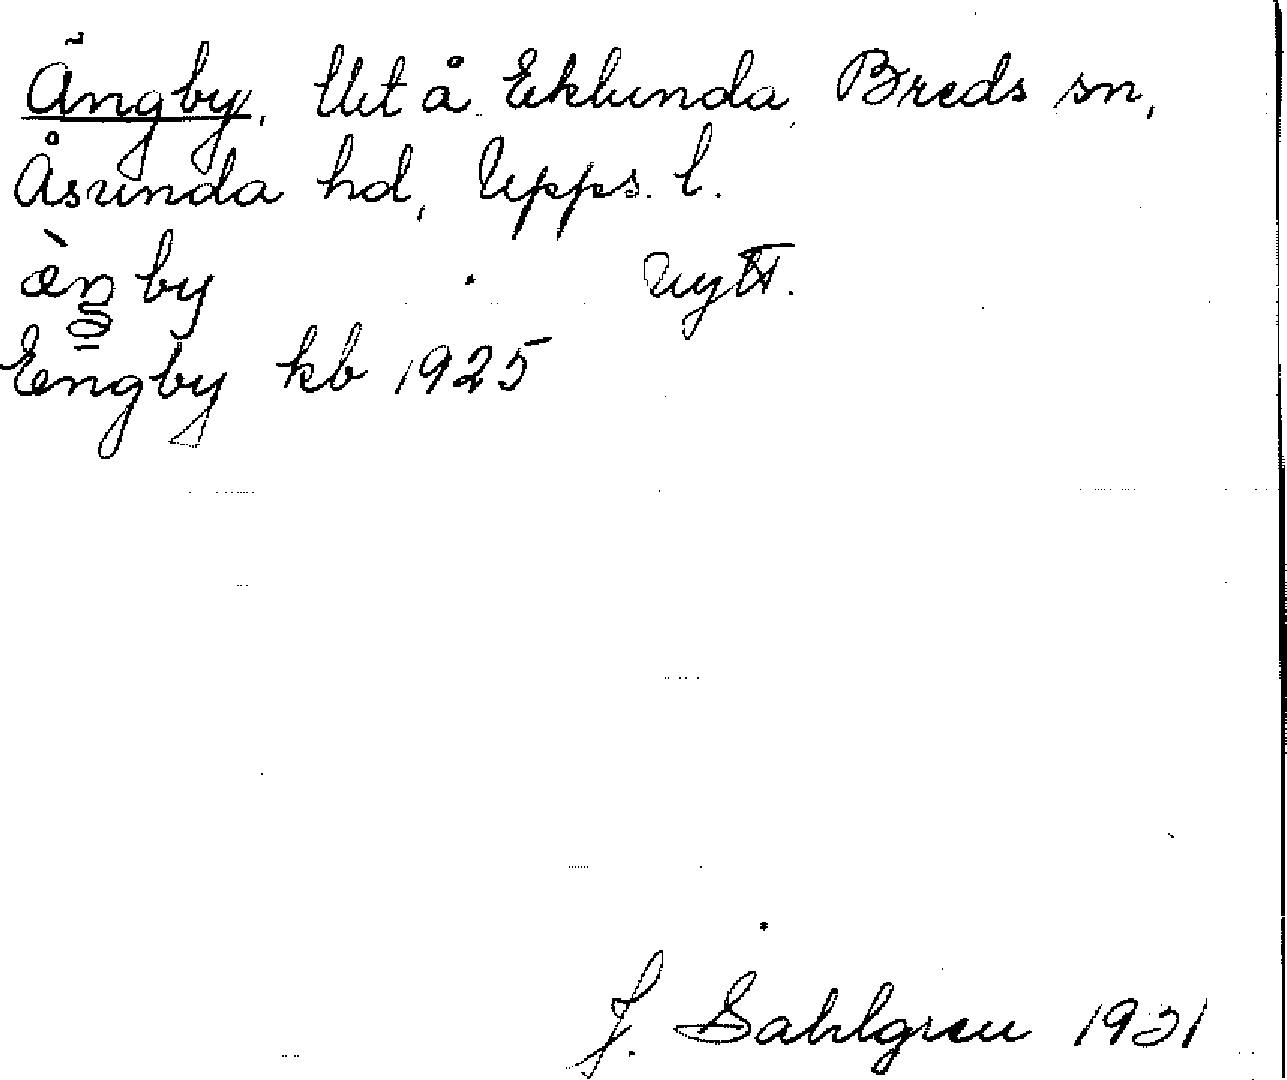 Ängby, å Eklunda, Breds sn,
Åsunda hd, Upps. l.
æ̀ŋby nytt.
Engby kb 1925
J. Sahlgren 1931